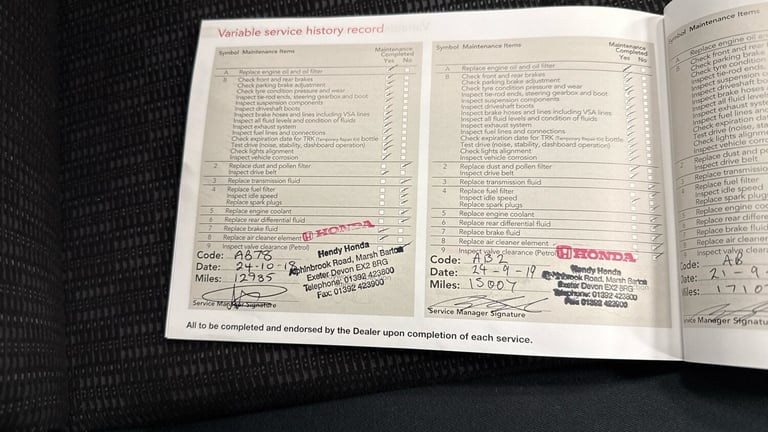 Variable service history record
Symbol Maintenance Items
Maintenance
Completed
Yes No
A Replace engine oil and oil filter
B Check front and rear brakes
Check parking brake adjustment
Check tyre condition and pressure and wear
Inspect tie-rod ends, steering gearbox and boot
Inspect suspension components
Inspect driveshaft boots
Inspect brake hoses and lines including VSA lines
Inspect all fluid levels and condition of fluids
Inspect exhaust system
Inspect fuel lines and connections
Check expiration date for TRK (Temporary Repair Kit) bottle
Test drive (noise, stability, dashboard operation)
Check lights alignment
Inspect vehicle corrosion
2 Replace dust and pollen filter
Inspect drive belt
3 Replace transmission fluid
4 Replace fuel filter
Inspect idle speed
Replace spark plugs
5 Replace engine coolant
6 Replace rear differential fluid
7 Replace brake fluid
8 Replace air cleaner element
9 Inspect valve clearance (Petrol)
HONDA
Code: AB78
Date: 24-10-18
Miles: 12935
Hendy Honda
Road, Marsh Barton
Exeter Devon EX2 8RG
Telephone: 01392 423800
Fax: 01392 423900
Service Manager Signature
Symbol Maintenance Items
Maintenance
Completed
Yes No
A Replace engine oil and oil filter
B Check front and rear brakes
Check parking brake adjustment
Check tyre condition and pressure and wear
Inspect tie-rod ends, steering gearbox and boot
Inspect suspension components
Inspect driveshaft boots
Inspect brake hoses and lines including VSA lines
Inspect all fluid levels and condition of fluids
Inspect exhaust system
Inspect fuel lines and connections
Check expiration date for TRK (Temporary Repair Kit) bottle
Test drive (noise, stability, dashboard operation)
Check lights alignment
Inspect vehicle corrosion
2 Replace dust and pollen filter
Inspect drive belt
3 Replace transmission fluid
4 Replace fuel filter
Inspect idle speed
Replace spark plugs
5 Replace engine coolant
6 Replace rear differential fluid
7 Replace brake fluid
8 Replace air cleaner element
9 Inspect valve clearance (Petrol)
HONDA
Code: AB2
Date: 24-9-19
Miles: 15007
Hendy Honda
Road, Marsh Barton
Exeter Devon EX2 8RG
Telephone: 01392 423800
Fax 01392 423900
Service Manager Signature
All to be completed and endorsed by the Dealer upon completion of each service.
Symbol Maintenance Items
A Replace engine oil
Check front and rear
Check parking brake
Check tyre condition
Inspect tie-rod ends,
Inspect suspension
Inspect driveshaft
Inspect brake hoses
Inspect all fluid levels
Inspect exhaust
Inspect fuel lines and
Check expiration date
Test drive (noise,
Check lights alignment
Inspect vehicle
Replace dust and
Inspect drive belt
Replace transmission
Replace fuel filter
Inspect idle speed
Replace spark plugs
Replace engine
Replace rear
Replace brake fluid
Replace air cleaner
Inspect valve
Code: AB
Date: 21-9-
Miles: 1710
Service Manager